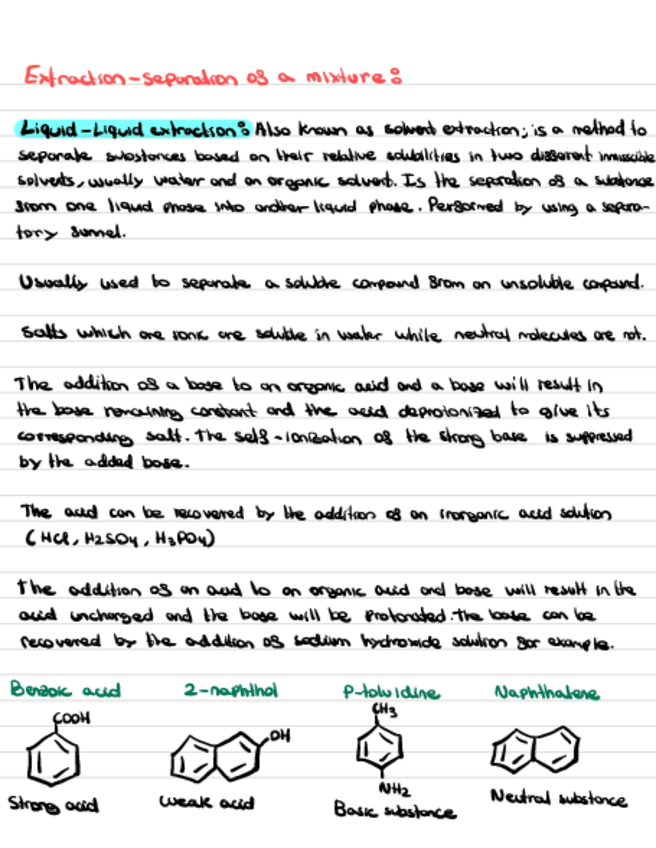 Extraction-separation of a mixture:
Liquid-Liquid extraction: Also known as solvent extraction; is a method to
separate substances based on their relative solubilities in two different immiscible
solvents, usually water and an organic solvent. Is the separation of a substance
from one liquid phase into another liquid phase. Performed by using a separa-
tory funnel.
Usually used to separate a soluble compound from an unsoluble compound.
Salts which are ionic are soluble in water while neutral molecules are not.
The addition of a base to an organic acid and a base will result in
the base remaining constant and the acid deprotonized to give its
corresponding salt. The self-ionization of the strong base is suppressed
by the added base.
The acid can be recovered by the addition of an inorganic acid solution
(HCl, H2SO4, H3PO4)
The addition of an acid to an organic acid and base will result in the
acid uncharged and the base will be protonated. The base can be
recovered by the addition of sodium hydroxide solution for example.
Benzoic acid 2-naphthol P-toluidine Naphthalene
COOH OH CH3
NH2
Strong acid Weak acid Basic substance Neutral substance